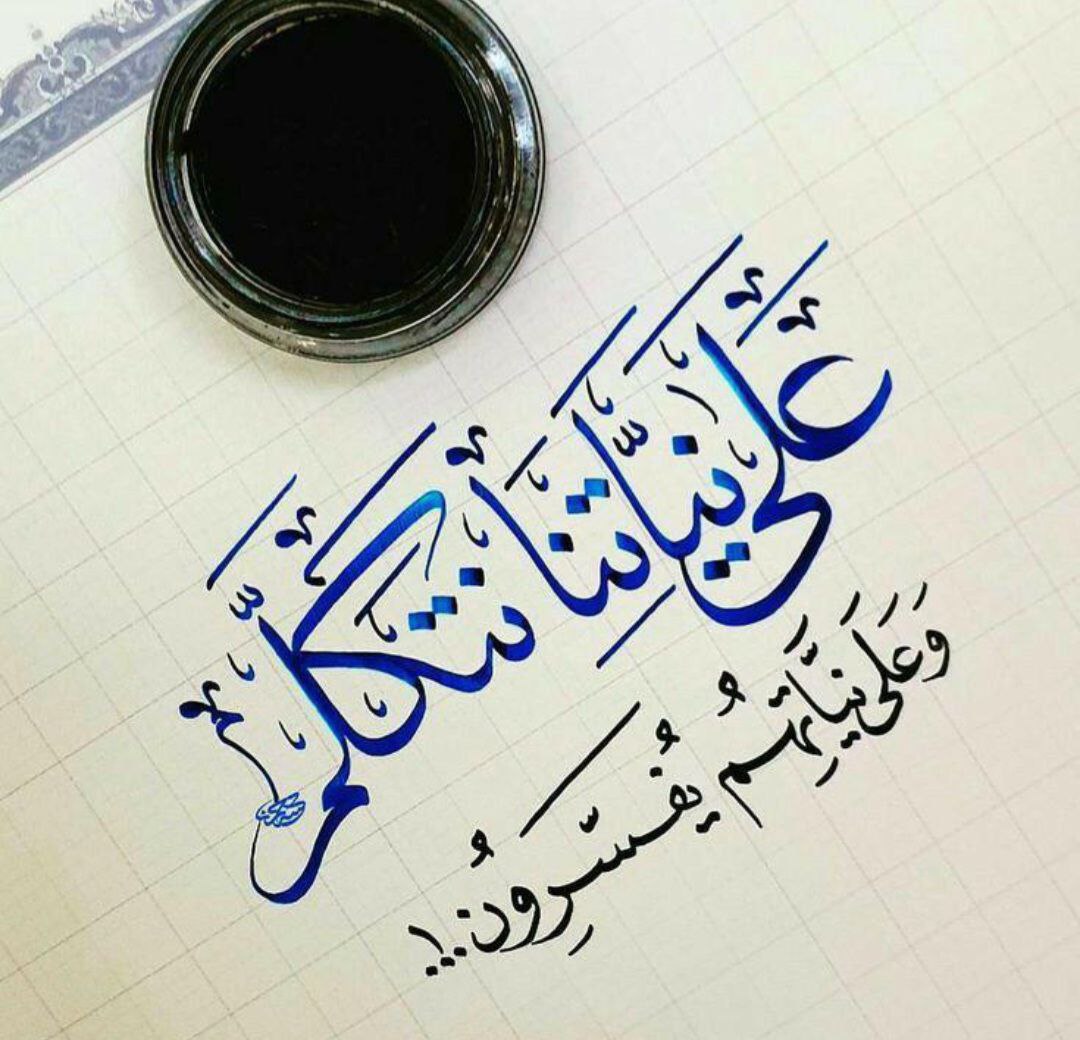 عَلَى نِيَّاتِنَا نَتَكَلَّمُ
وَعَلَى نِيَّاتِهُمْ يُفَسِّرُونَ..!